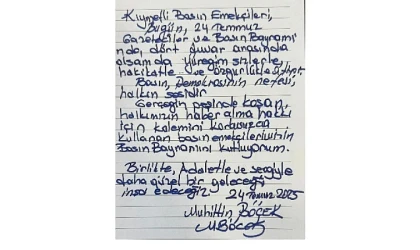 Kıymetli Basın Emekçileri,
Bugün, 24 Temmuz
Gazeteciler ve Basın Bayramı
nda, dört duvar arasında
olsamda yüreğim sizlerle,
hakikatle ve özgürlükle
Basın, Demokrasinin nefesi,
halkın sesidir
Gerçeğin peşinde koşan,
halkımızın haber alma hakkı
için kalemini korkusuzca
kullanan basın emekçilerimizin
Basın Bayramını kutluyorum.
Birlikte, Adaletle ve sevgiyle
daha güzel bir geleceği
inşa edeceğiz 24 Temmuz 2025
Muhittin BÖCEK
MBöcek